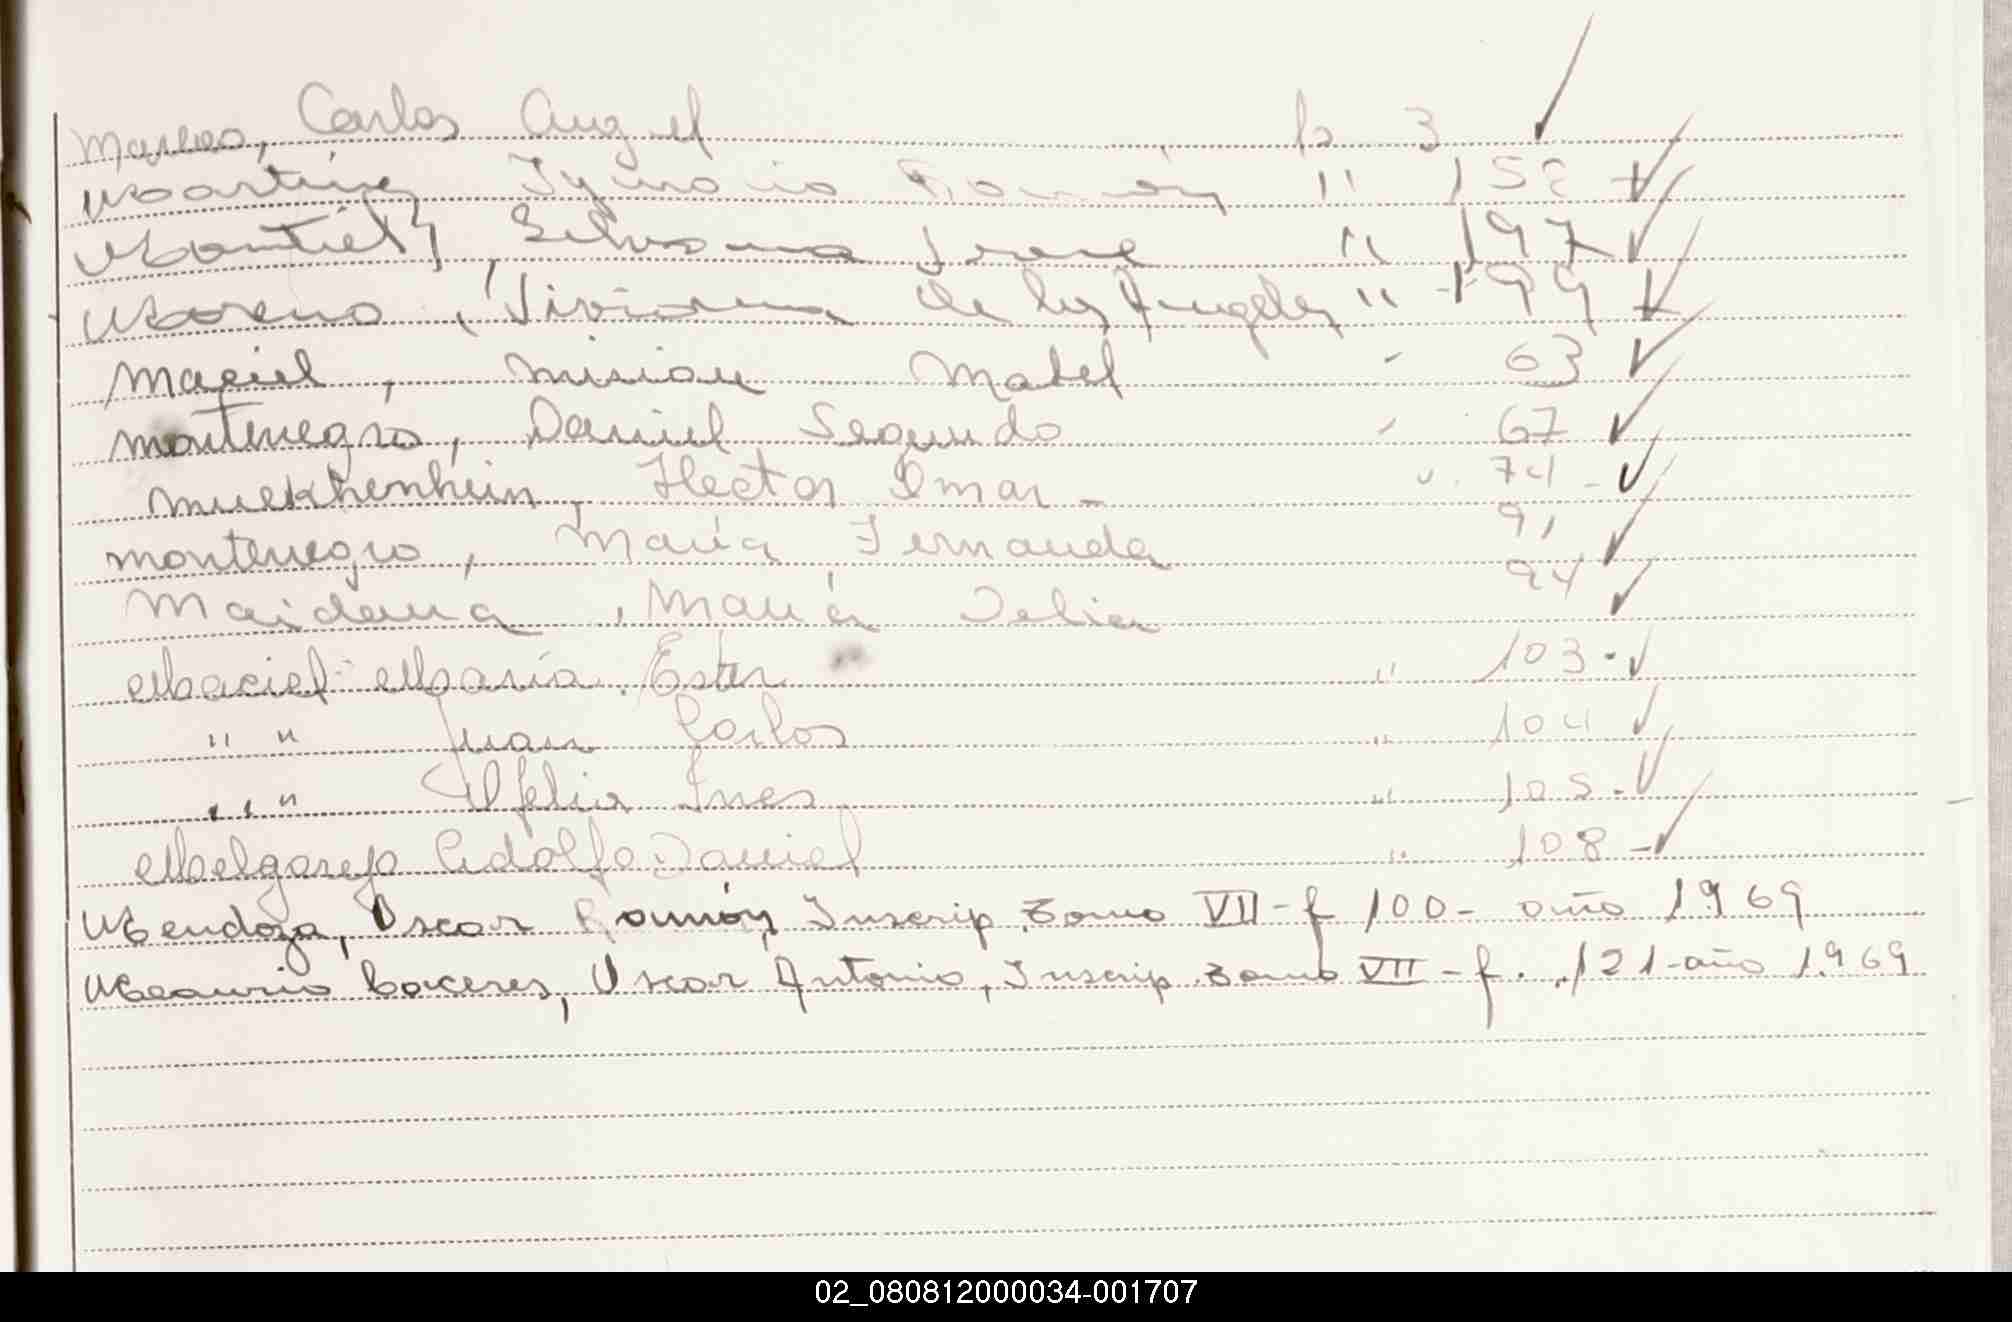 Marcos, Carlos Angel fs 3
Martinez Ignacio Ramón " 152
Montiel, Silvana Irene " 197
Moreno, Viviana de los Angeles " 199
Maciel, Misiam Mabel " 63
Montenegro, Daniel Segundo " 67
Muekhenhein Hector Omar - " 74 -
Montenegro, María Fernanda 91
Maidana, María Delia 94
Maciel María Ester " 103 -
" " Juan Carlos " 104
" " Ofelia Ines " 105 -
Melgarejo Adolfo Daniel " 108 -
Mendoza, Oscar Ramón, Inscrip. Tomo VII - f 100 - año 1969
Meaurio Caceres, Oscar Antonio, Inscrip. Tomo VII - f. 121 - año 1969
02_080812000034-001707